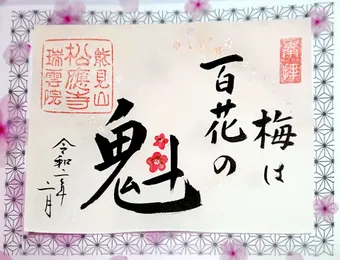 奉拝
梅は
百花の
魁
熊見山
松應寺
瑞雲院
令和二年
二月